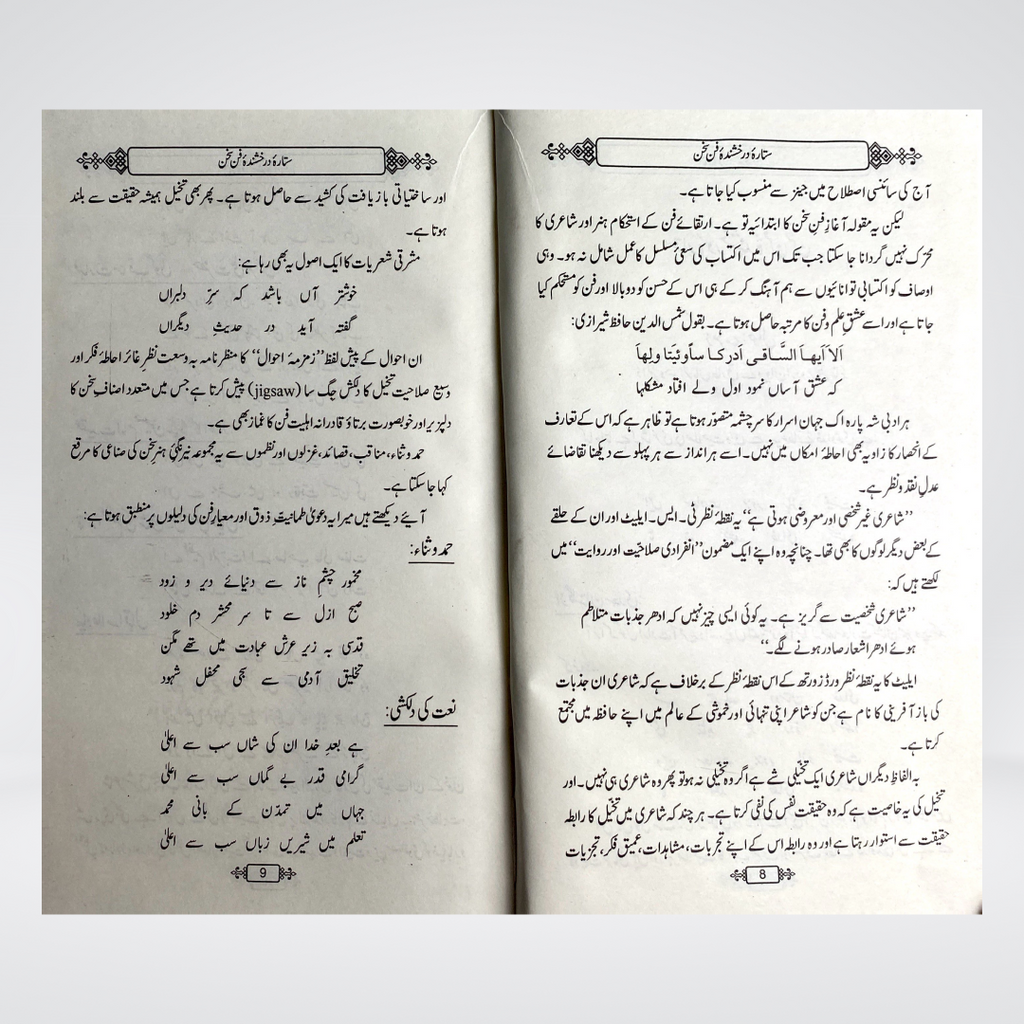 ستارۂ درخشندۂ فن سخن
آج کی سائنسی اصطلاح میں جینز سے منسوب کیا جاتا ہے۔
لیکن یہ مقولہ آغازِ فنِ سخن کا ابتدائیہ تو ہے۔ ارتقائے فن کے استحکام ہنر اور شاعری کا
محرّک نہیں گردانا جا سکتا جب تک اس میں اکتساب کی سعیٔ مسلسل کا عمل شامل نہ ہو۔ وہی
اوصاف کو اکتسابی توانائیوں سے ہم آہنگ کر کے ہی اس کے حسن کو دوبالا اور فن کو مستحکم کیا
جاتا ہے اور اسے عشقِ علم و فن کا مرتبہ حاصل ہوتا ہے۔ بقول شمس الدین حافظ شیرازی:
اَلاَ اَیھاَ السَّاقی اَدر کا ساً وئیتا ولِھاَ
کہ عشق آساں نمود اول ولے افتاد مشکلہا
ہر ادبی شہ پارہ اک جہانِ اسرار کا سرچشمہ متصوّر ہوتا ہے تو ظاہر ہے کہ اس کے تعارف
کے انحصار کا زاویہ بھی احاطۂ امکاں میں نہیں۔ اسے ہر انداز سے ہر پہلو سے دیکھنا تقاضائے
عدلِ نقد و نظر ہے۔
’’شاعری غیر شخصی اور معروضی ہوتی ہے‘‘ یہ نقطۂ نظر ٹی۔ ایس۔ ایلیٹ اور ان کے حلقے
کے بعض دیگر لوگوں کا بھی تھا۔ چنانچہ وہ اپنے ایک مضمون ’’انفرادی صلاحیّت اور روایت‘‘ میں
لکھتے ہیں کہ:
’’شاعری شخصیت سے گریز ہے۔ یہ کوئی ایسی چیز نہیں کہ ادھر جذبات متلاطم
ہوئے ادھر اشعار صادر ہونے لگے۔‘‘
ایلیٹ کا یہ نقطۂ نظر ورڈزورتھ کے اس نقطۂ نظر کے برخلاف ہے کہ شاعری ان جذبات
کی باز آفرینی کا نام ہے جن کو شاعر اپنی تنہائی اور خموشی کے عالم میں اپنے حافظہ میں مجتمع
کرتا ہے۔
بہ الفاظِ دیگراں شاعری ایک تخیّلی شے ہے اگر وہ تخیّلی نہ ہو تو پھر وہ شاعری ہی نہیں۔ اور
تخیل کی یہ خاصیت ہے کہ وہ حقیقت نفس کی نفی کرتا ہے۔ ہر چند کہ شاعری میں تخیّل کا رابطہ
حقیقت سے استوار رہتا ہے اور وہ رابطہ اس کے اپنے تجربات، مشاہدات، عمیق فکر، تجزیات
8
ستارۂ درخشندۂ فن سخن
اور ساختیاتی بازیافت کی کشید سے حاصل ہوتا ہے۔ پھر بھی تخیّل ہمیشہ حقیقت سے بلند
ہوتا ہے۔
مشرقی شعریات کا ایک اصول یہ بھی رہا ہے:
خوشتر آں باشد کہ سرِّ دلبراں
گفتہ آید در حدیثِ دیگراں
ان احوال کے پیش لفظ ’’زمزمۂ احوال‘‘ کا منظر نامہ بہ وسعت نظرِ غائر احاطۂ فکر اور
وسیع صلاحیت تخیّل کا دلکش جگ سا (jigsaw) پیش کرتا ہے جس میں متعدد اصنافِ سخن کا
دلپزیر اور خوبصورت برتاؤ قادرانہ اہلیتِ فن کا غماز بھی ہے۔
حمد و ثناء، مناقب، قصائد، غزلوں اور نظموں سے یہ مجموعہ نیرنگیٔ ہنرِ سخن کی صناعی کا مرقع
کہا جا سکتا ہے۔
آئیے دیکھتے ہیں میرا یہ دعویٰ طمانیتِ ذوق اور معیارِ فن کی دلیلوں پر منطبق ہوتا ہے:
حمد و ثناء:
مخمور چشمِ ناز سے دنیائے دیر و زود
صبح ازل سے تا سر محشر دمِ خلود
قدسی بہ زیرِ عرش عبادت میں تھے مگن
تخلیقِ آدمی سے سجی محفلِ شہود
نعت کی دلکشی:
ہے بعدِ خدا ان کی شاں سب سے اعلیٰ
گرامی قدر بے گماں سب سے اعلیٰ
جہاں میں تمدّن کے بانی محمد
تعلم میں شیریں زباں سب سے اعلیٰ
9